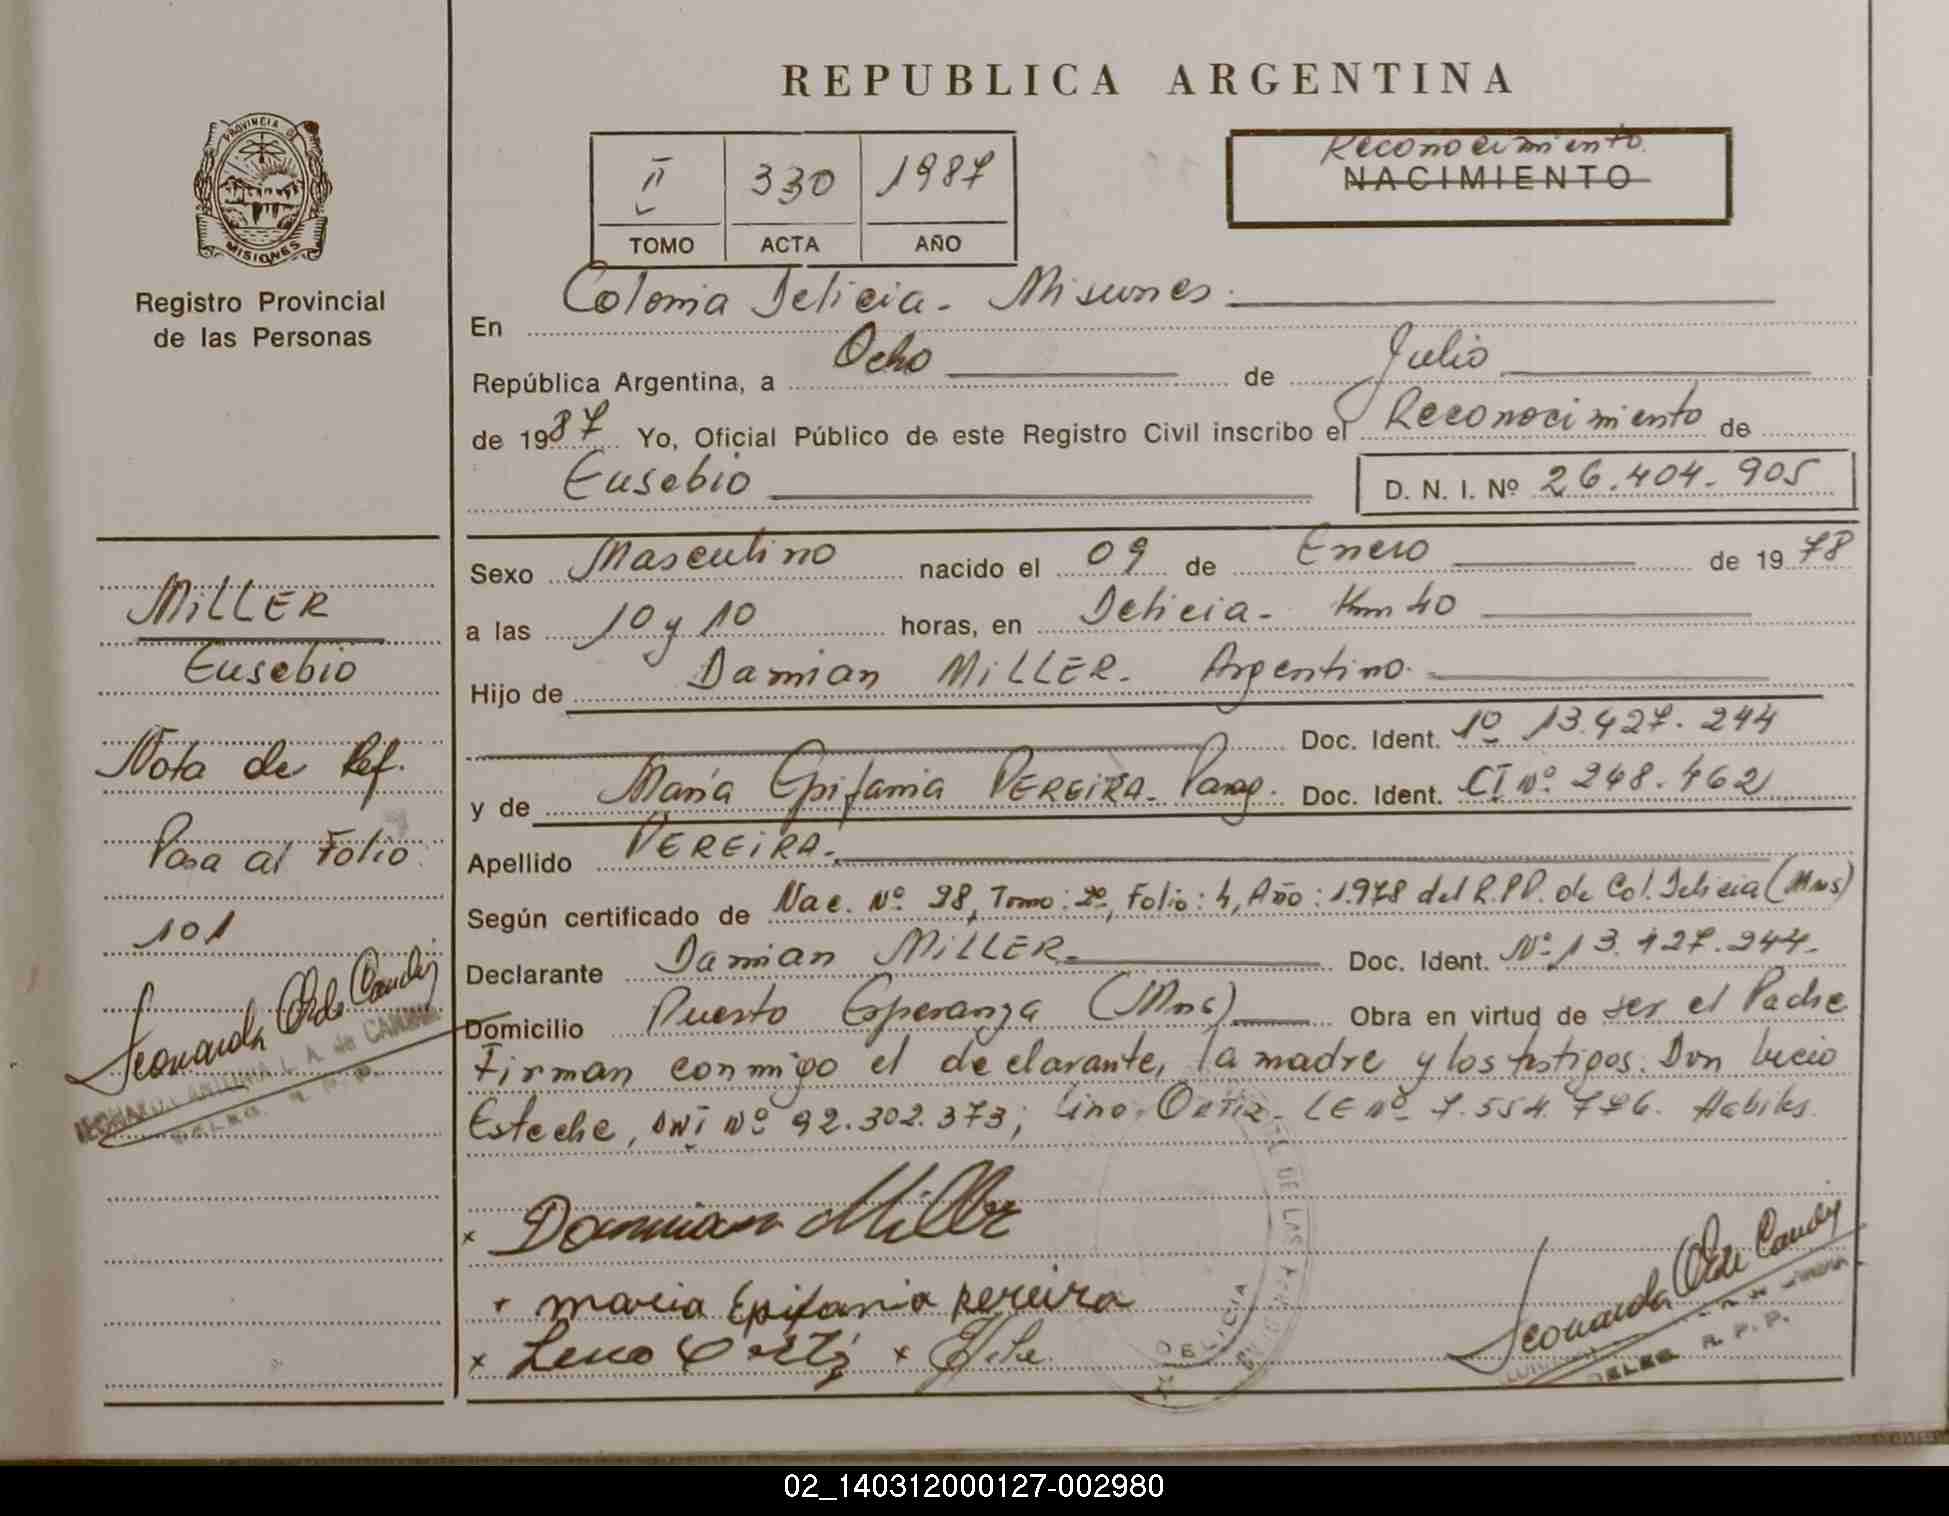 REPUBLICA ARGENTINA
PROVINCIA DE
MISIONES
Registro Provincial
de las Personas
II 330 1987
TOMO ACTA AÑO
Reconocimiento
NACIMIENTO
En Colonia Delicia - Misiones.
República Argentina, a Ocho de Julio
de 1987 Yo, Oficial Público de este Registro Civil inscribo el Reconocimiento de
Eusebio D. N. I. Nº 26.404.905
Sexo Masculino nacido el 09 de Enero de 1978
a las 10 y 10 horas, en Delicia - Km 40
Hijo de Damian MiLLER - Argentino.
Doc. Ident. 1º 13.427.244
y de María Epifania PEREiRA - Parag. Doc. Ident. CI Nº 248.462
Apellido PEREiRA.
Según certificado de Nac. Nº 98, Tomo: 2º, Folio: 4, Año: 1.978 del R.P.P. de Col. Delicia (Mns)
Declarante Damian MiLLER Doc. Ident. Nº 13.427.244.
Domicilio Puerto Esperanza (Mns) Obra en virtud de ser el Padre
Firman conmigo el declarante, la madre y los testigos. Don Lucio
Esteche, DNI Nº 92.302.373; Lino Ortiz - LE Nº 7.554.776. Habiles.
x Damian Miller
+ maria Epifania pereira
x Leno Ortiz x
DELICIA
DE LAS
Leonarda
DELEG. R. P. P.
MiLLER
Eusebio
Nota de Ref.
Pasa al Folio
101
Leonarda
DELEG. R. P. P.
02_140312000127-002980